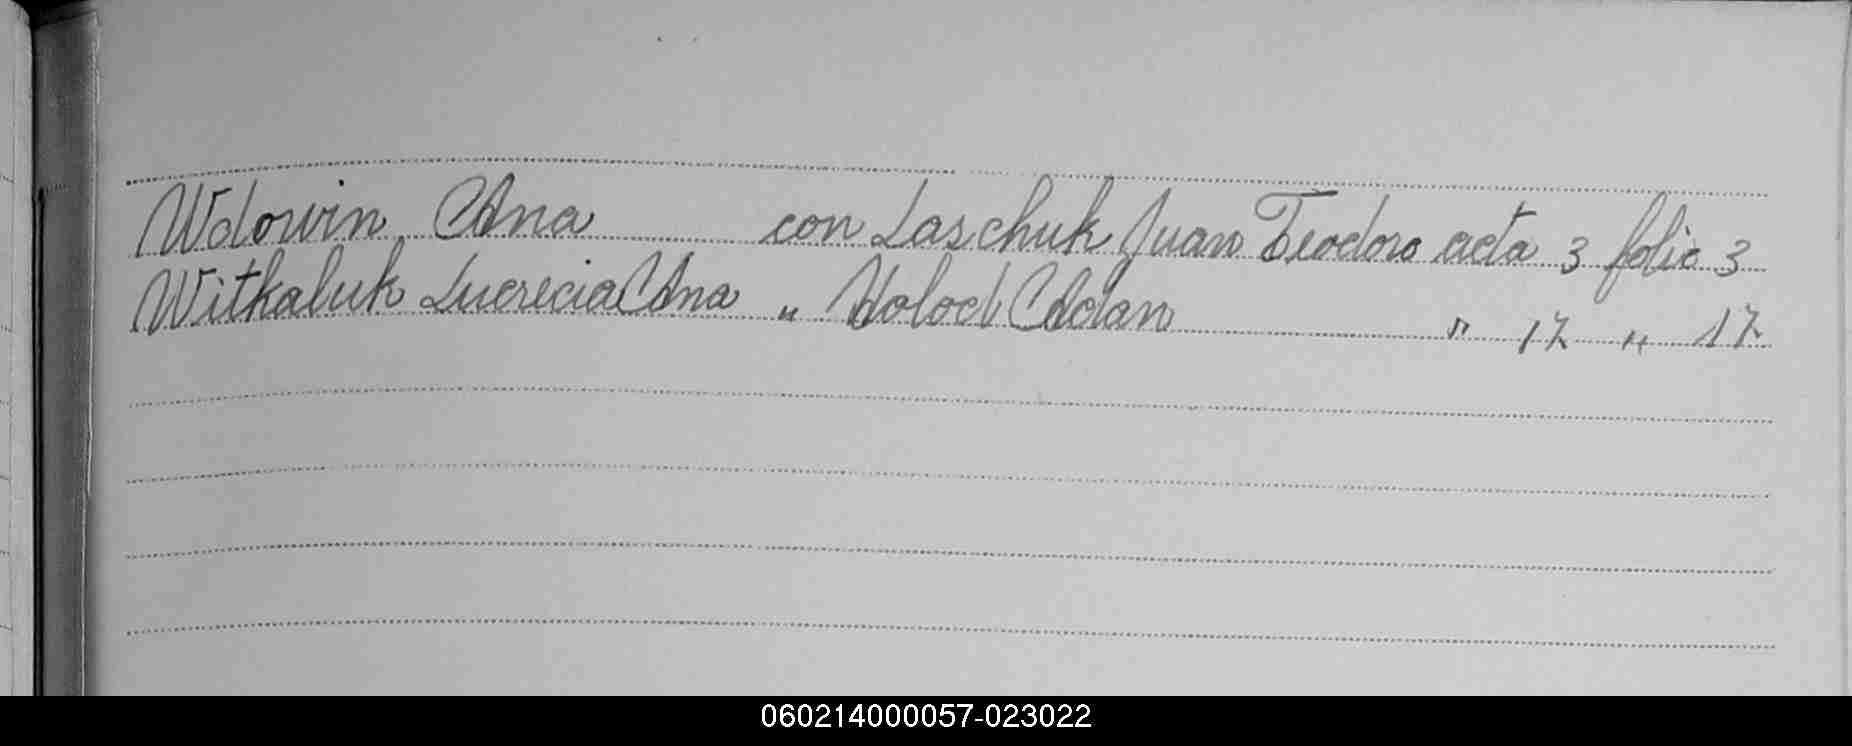 Wdowin Ana con Laschuk Juan Teodoro acta 3 folio 3
Witkaluk Lucrecia Ana " Holod Adan " 17 " 17
060214000057-023022